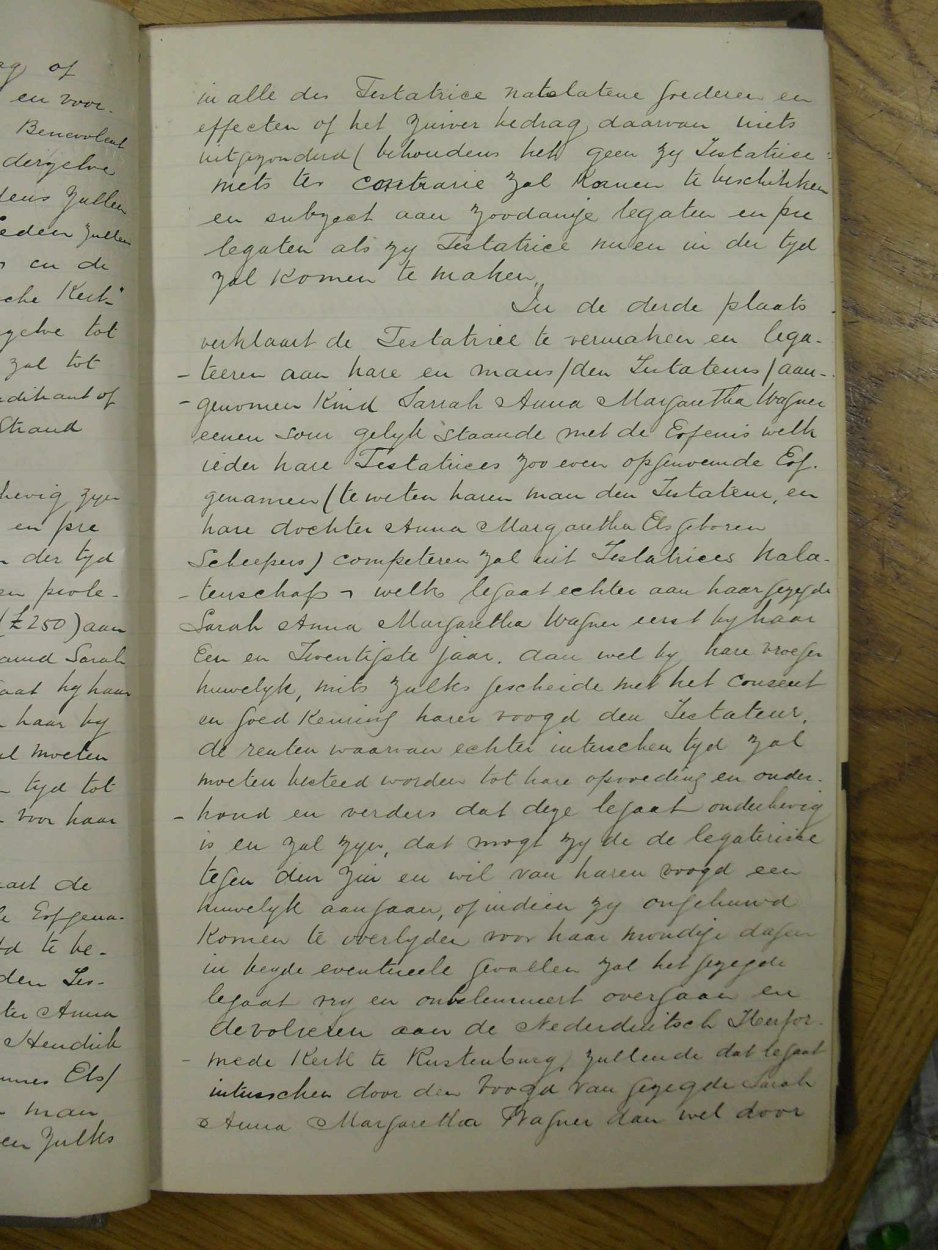 ag of
en voor-
Benevolent
dezelve
dens zullen
leden zullen
en de
sche Kerk"
zelve tot
zal tot
aditant of
Strand
hevig zyn
en pre
n der tyd
en prole-
(£250) aan
amd Sarah
aat by haar
haar by
al moeten
tyd tot
voor haar
aart de
le Erfgena-
td te be-
den Tes-
ter Anna
Hendrik
nnes Els/
man
een zulks
in alle des Testatrice natelatene goederen en
effecten of het zuiver bedrag daarvan niets
uitgezonderd (behoudens het geen zy Testatrise
mets ter contrarie zal komen te beschikken
en subject aan zoodanige legaten en pre
legaten als zy Testatrice nu en in der tyd
zal komen te maken.
In de derde plaats
verklaart de Testatrice te vermaken en lega-
- teeren aan hare en mans/den Testateurs/aan-
- genomen Kind Sarrah Anna Margaretha Wagner
eenen som gelyk staande met de Erfenis welk
ieder hare Testatrices zoo even opgenoemde Erf-
genamen (te weten haren man den Testateur, en
hare dochter Anna Margaretha Els geboren
Scheepers) competeren zal uit Testatrices Nala-
- tenschap - welks legaat echter aan haar gezegde
Sarah Anna Margaretha Wagner eerst by haar
Een en Twentigste jaar, dan wel by hare vroeger
huwelyk, mits zulks gescheide met het consent
en goed Keuring harer voogd den Testateur,
de renten waarvan echter interschen tyd zal
moeten besteed worden tot hare opvoeding en onder-
- houd en verders dat deze legaat onderhevig
is en zal zyn, dat mogt zy de de legaterisse
tegen den zin en wil van haren voogd een
huwelyk aangaan, of indien zy ongehuwd
Komen te overlyden voor haar mondige dagen
in beyde eventueele gevallen zal het gezegde
legaat vry en onbelemmert overgaan en
devolveren aan de Nederduitsch Herfor-
- mede Kerk te Rustenburg, zullende dat legaat
interschen door den voogd van gezegde Sarah
Anna Margaretha Wagner dan wel door